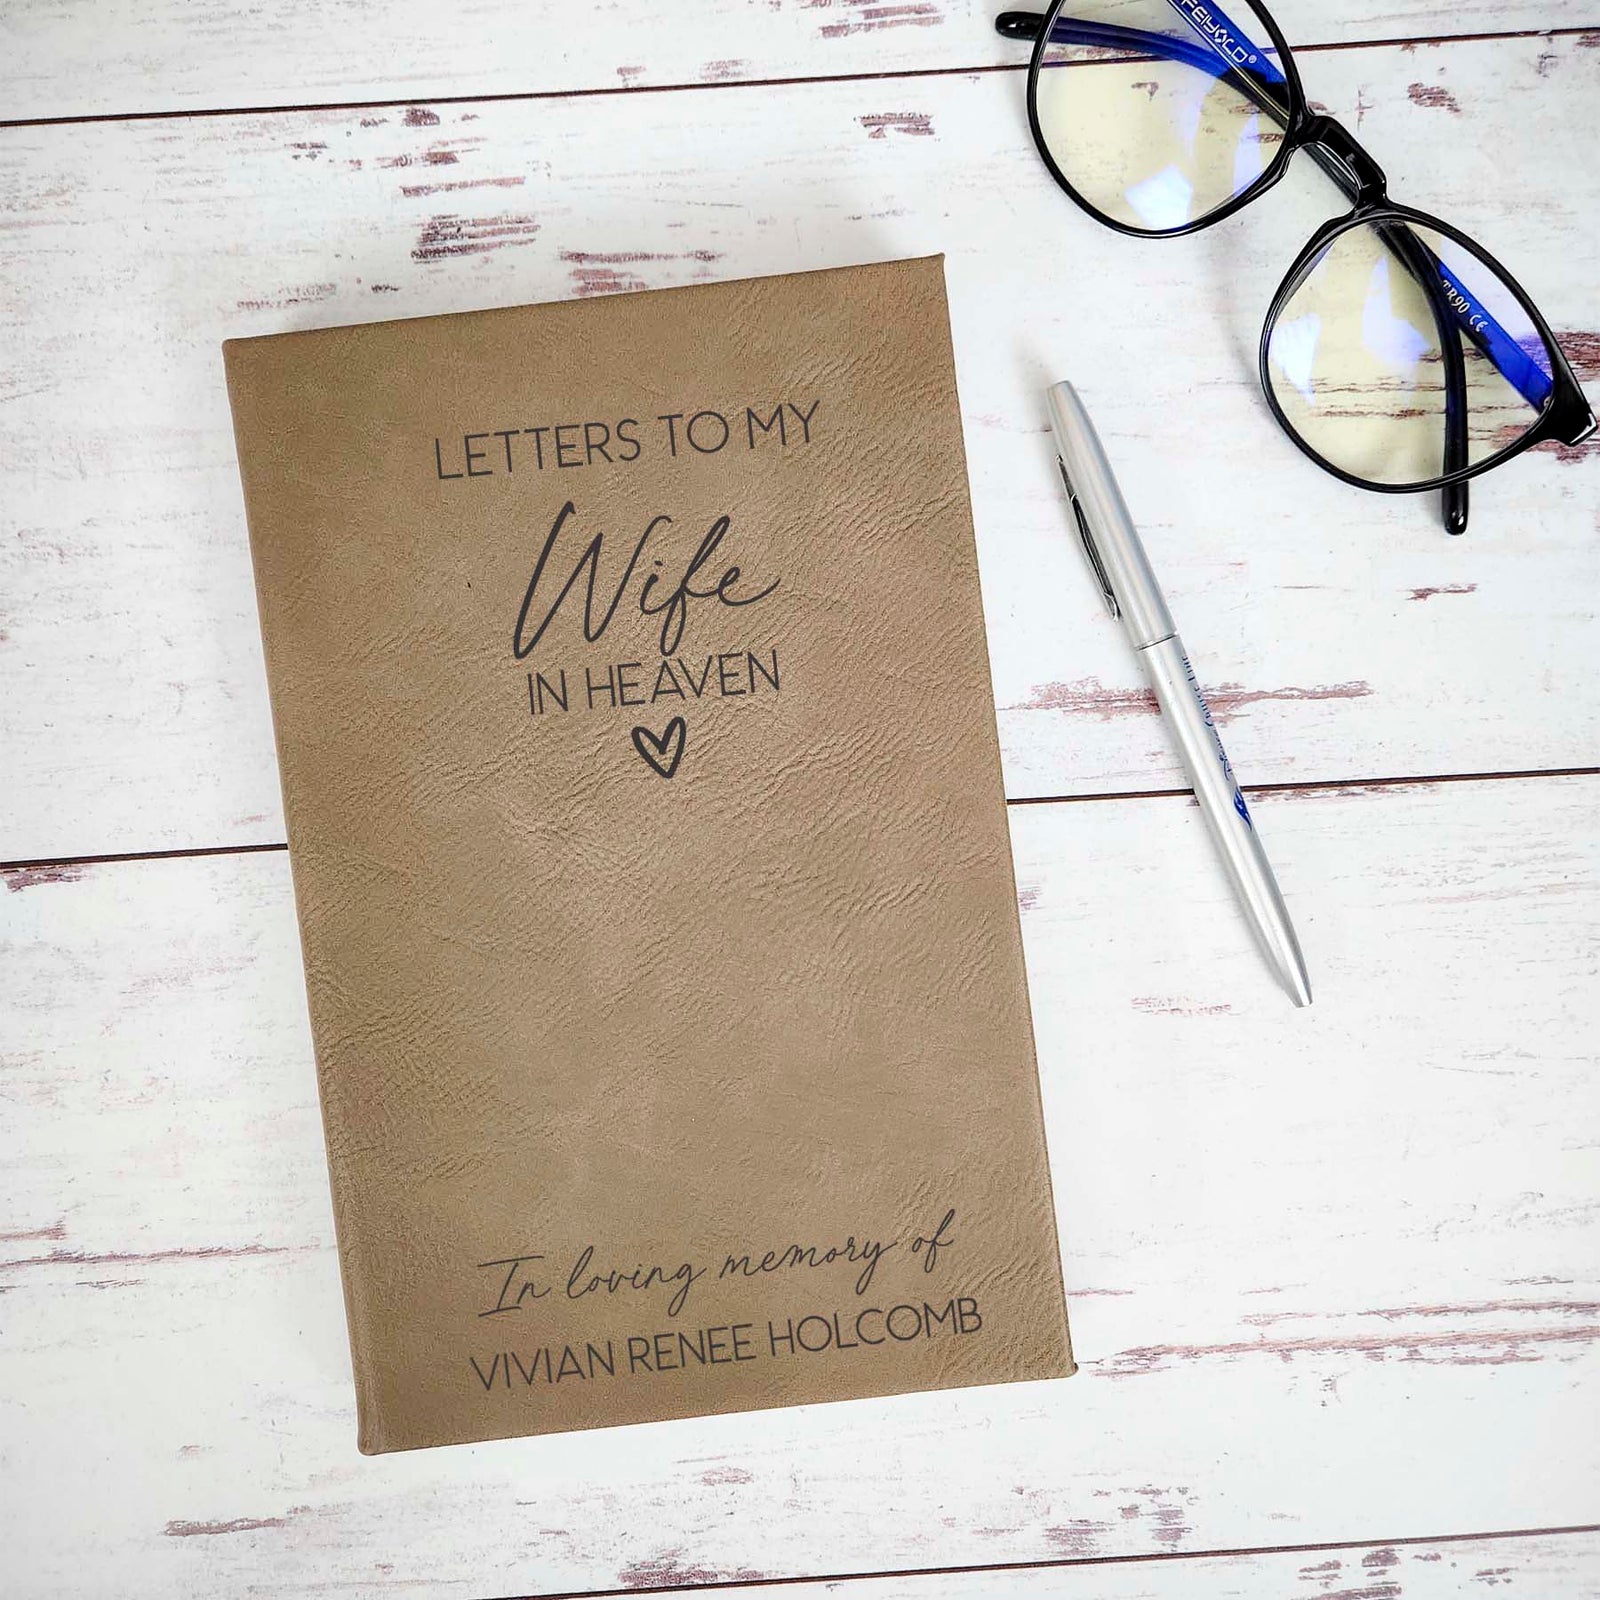 FEIYOLD®
TR90 CE
LETTERS TO MY
Wife
IN HEAVEN
In loving memory of
VIVIAN RENEE HOLCOMB